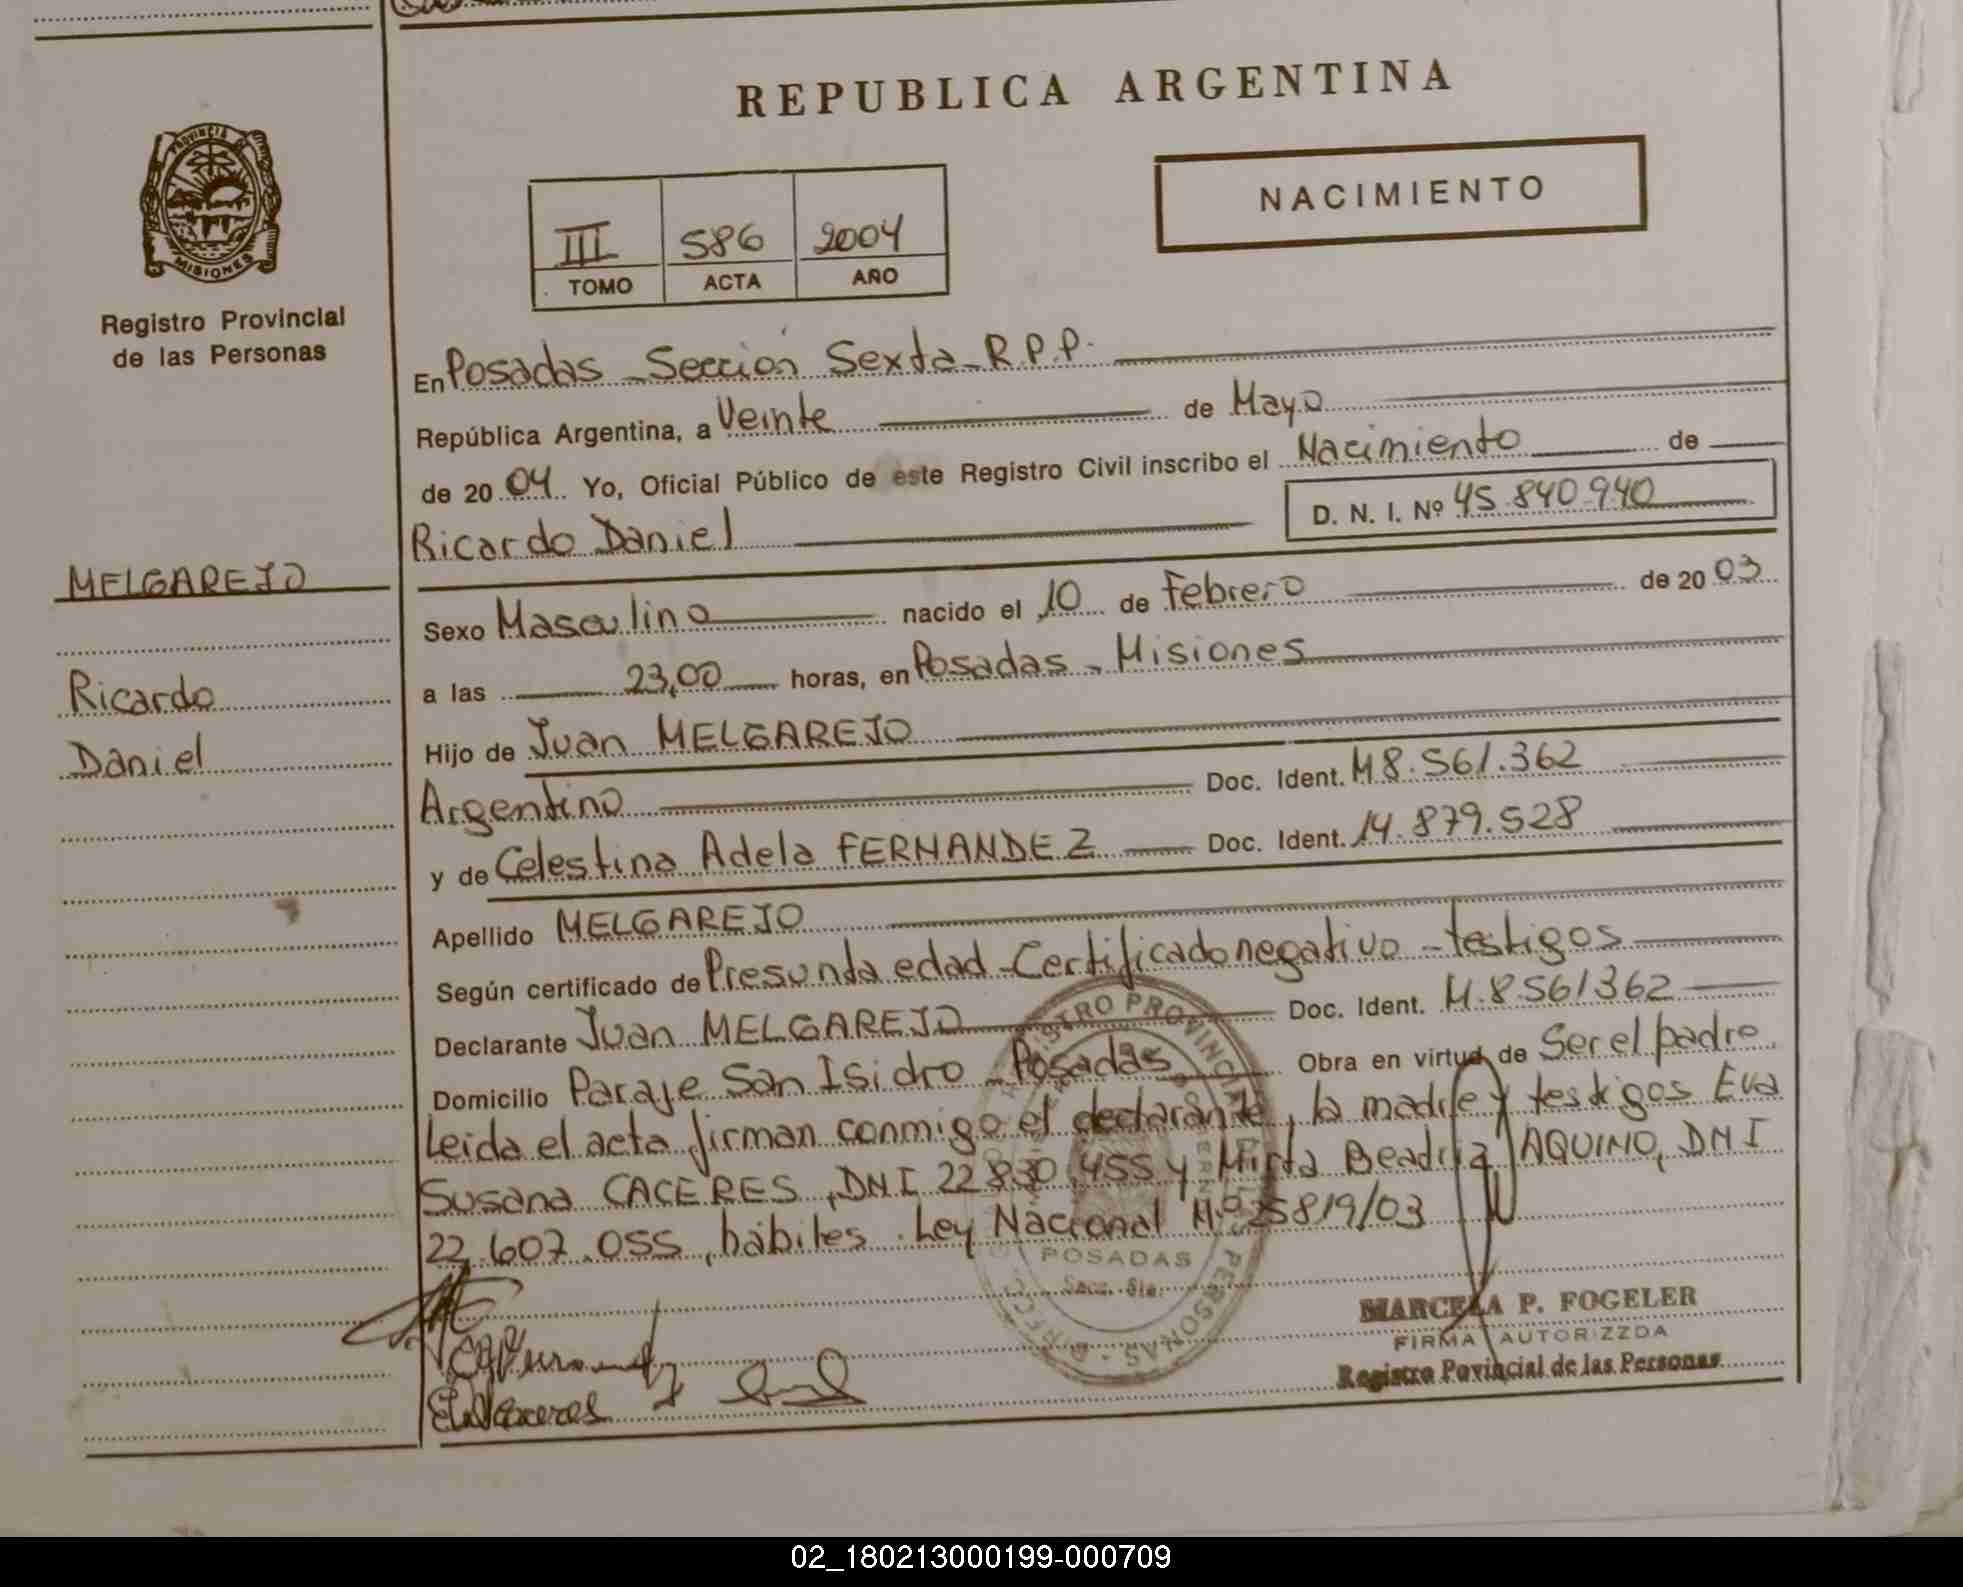 REPUBLICA ARGENTINA
NACIMIENTO
III 586 2004
TOMO ACTA AÑO
PROVINCIA DE
MISIONES
Registro Provincial
de las Personas
MELGAREJO
Ricardo
Daniel
En Posadas - Sección Sexta - R.P.P.
República Argentina, a Veinte de Mayo
de 20 04 Yo, Oficial Público de este Registro Civil inscribo el Nacimiento de
Ricardo Daniel D. N. I. Nº 45.840.940
Sexo Masculino nacido el 10 de Febrero de 20 03
a las 23,00 horas, en Posadas - Misiones
Hijo de Juan MELGAREJO
Argentino Doc. Ident. M 8.561.362
y de Celestina Adela FERNANDEZ Doc. Ident. 14.879.528
Apellido MELGAREJO
Según certificado de Presunta edad - Certificado negativo - testigos
Declarante Juan MELGAREJO Doc. Ident. M.8561362
Domicilio Paraje San Isidro - Posadas Obra en virtud de Ser el padre
Leida el acta firman conmigo el declarante, la madre y testigos Eva
Susana CACERES, DNI 22.830.455 y Mirta Beatriz AQUINO, DNI
22.607.055, hábiles. Ley Nacional Nº 25819/03
POSADAS
Secc. 6ta.
MARCELA P. FOGELER
FIRMA AUTORIZZDA
Registro Povincial de las Personas
02_180213000199-000709